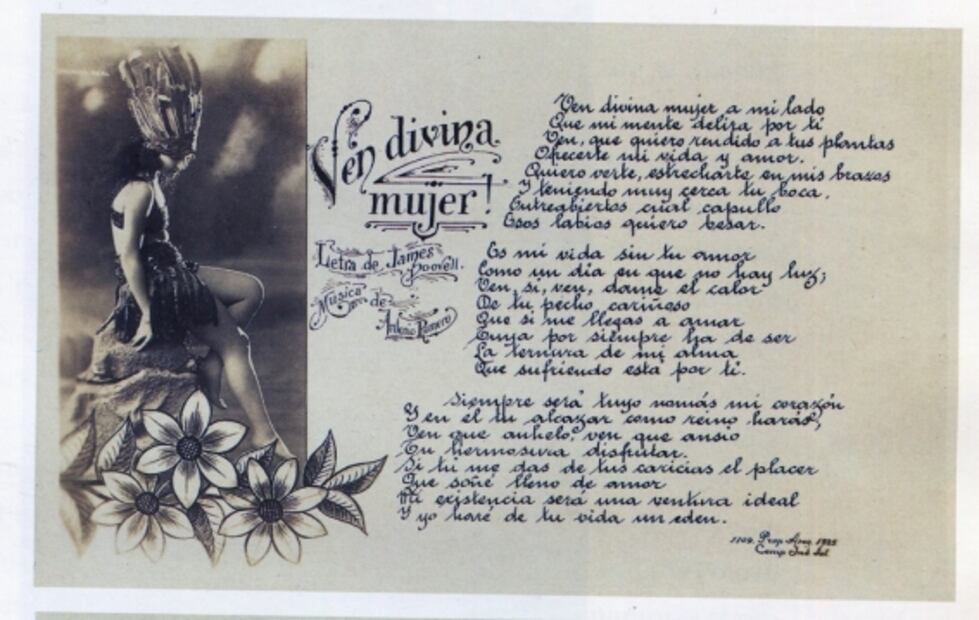 Ven divina
mujer!
Letra de James
Música de
Antonio Romero
Ven divina mujer a mi lado
Que mi mente delira por ti
Ven, que quiero rendido a tus plantas
Ofrecerte mi vida y amor.
Quiero verte, estrecharte en mis brazos
Y teniendo muy cerca tu boca,
Entreabiertos cual capullo
Esos labios quiero besar.
Es mi vida sin tu amor
Como un día en que no hay luz;
Ven, si, ven, dame el calor
De tu pecho cariñoso
Que si me llegas a amar
Tuya por siempre ha de ser
La ternura de mi alma
Que sufriendo está por ti.
Siempre será tuyo nomás mi corazón
Y en el tu alcazar como reino harás,
Ven que anhelo, ven que ansio
Tu hermosura disfrutar.
Si tu me das de tus caricias el placer
Que soñé lleno de amor
Mi existencia será una ventura ideal
Y yo haré de tu vida un eden.
1109. Prop. Aseg. 1925
Comp. Ind. Fot.